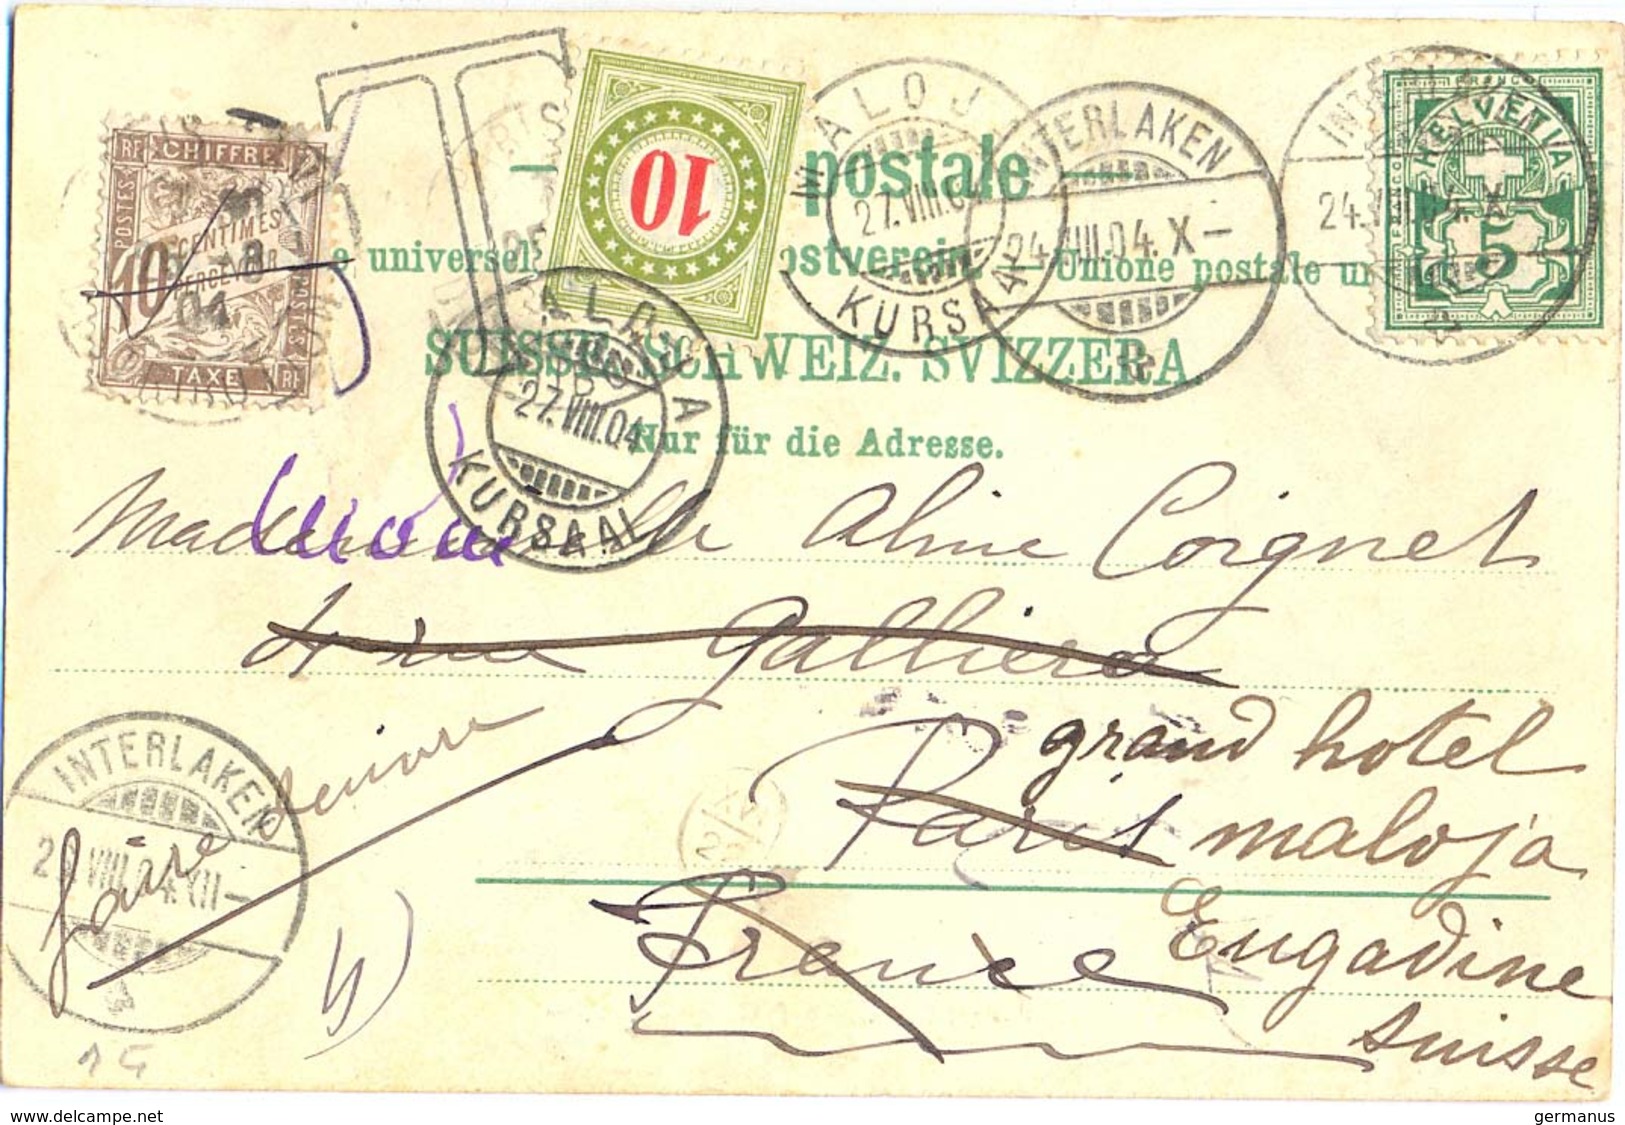 RF CHIFFRE
POSTES
10 CENTIMES
A PERCEVOIR
TAXE RF
T
10
MALOJA
27.VIII.04
KURSAAL
INTERLAKEN
24.VIII.04.X–
FRANCO
HELVETIA
5
24.VIII.04.X
postale
universelle
postverein — Unione postale
SUISSE. SCHWEIZ. SVIZZERA
27.VIII.04
KURSAAL
Nur für die Adresse.
Mademoiselle Aline Coignet
rue Galliera
grand hotel
Paris maloja
France Engadine
Suisse
faire suivre
INTERLAKEN
VIII.04.XII–
www.delcampe.net
germanus